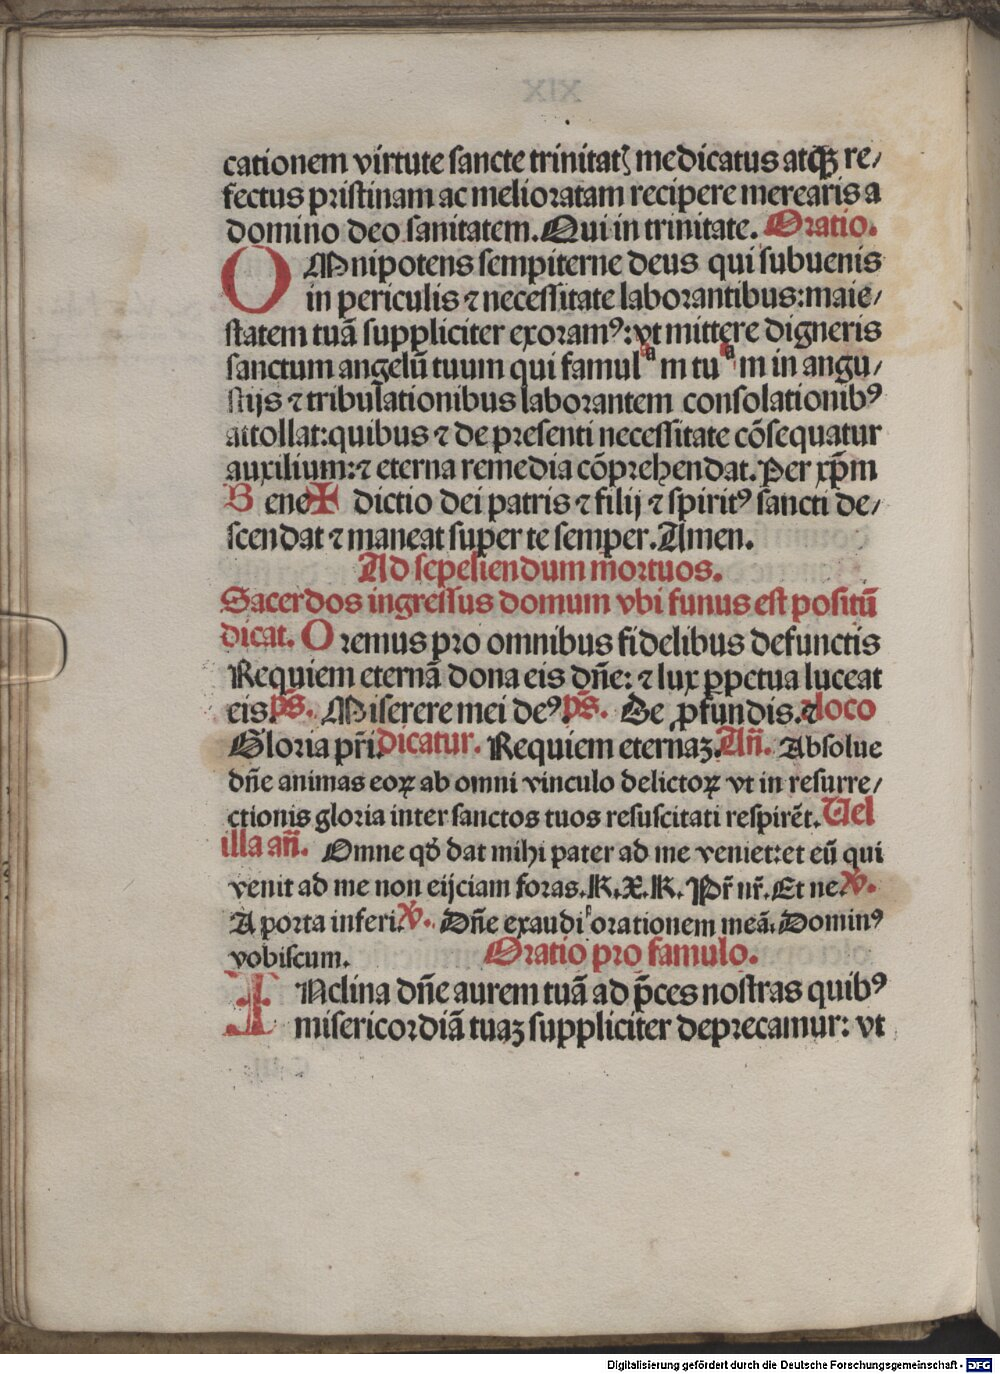 XIX
cationem virtute sancte trinitatꝭ medicatus atqꝫ re/
fectus pristinam ac melioratam recipere merearis a
domino deo sanitatem. Qui in trinitate. Oratio.
OMnipotens sempiterne deus qui subuenis
in periculis ⁊ necessitate laborantibus: maie/
statem tuã suppliciter exoramꝰ: vt mittere digneris
sanctum angelũ tuum qui famulᵃm tuᵃm in angu/
stijs ⁊ tribulationibus laborantem consolationibꝰ
attollat: quibus ⁊ de presenti necessitate cõsequatur
auxilium: ⁊ eterna remedia cõprehendat. Per xp̃m
B ene ✠ dictio dei patris ⁊ filij ⁊ spiritꝰ sancti de/
scendat ⁊ maneat super te semper. Amen.
Ad sepeliendum mortuos.
Sacerdos ingressus domum vbi funus est positũ
dicat. Oremus pro omnibus fidelibus defunctis
Requiem eternã dona eis dñe: ⁊ lux ꝑpetua luceat
eis. p̃s. Miserere mei deꝰ. p̃s. De ꝓfundis. ⁊ loco
Gloria pr̃i. dicatur. Requiem eternaꝫ. Añ. Absolue
dñe animas eoꝝ ab omni vinculo delictoꝝ vt in resurre/
ctionis gloria inter sanctos tuos resuscitati respirẽt. Uel
illa añ. Omne qď dat mihi pater ad me veniet: et eũ qui
venit ad me non eijciam foras. K. X. K. Pr̃ nr̃. Et ne. ℣.
A porta inferi. ℣. Dñe exaudi orationem meã. Dominꝰ
vobiscum. Oratio pro famulo.
INclina dñe aurem tuã ad p̃ces nostras quibꝰ
misericordiã tuaꝫ suppliciter deprecamur: vt
Digitalisierung gefördert durch die Deutsche Forschungsgemeinschaft - DFG